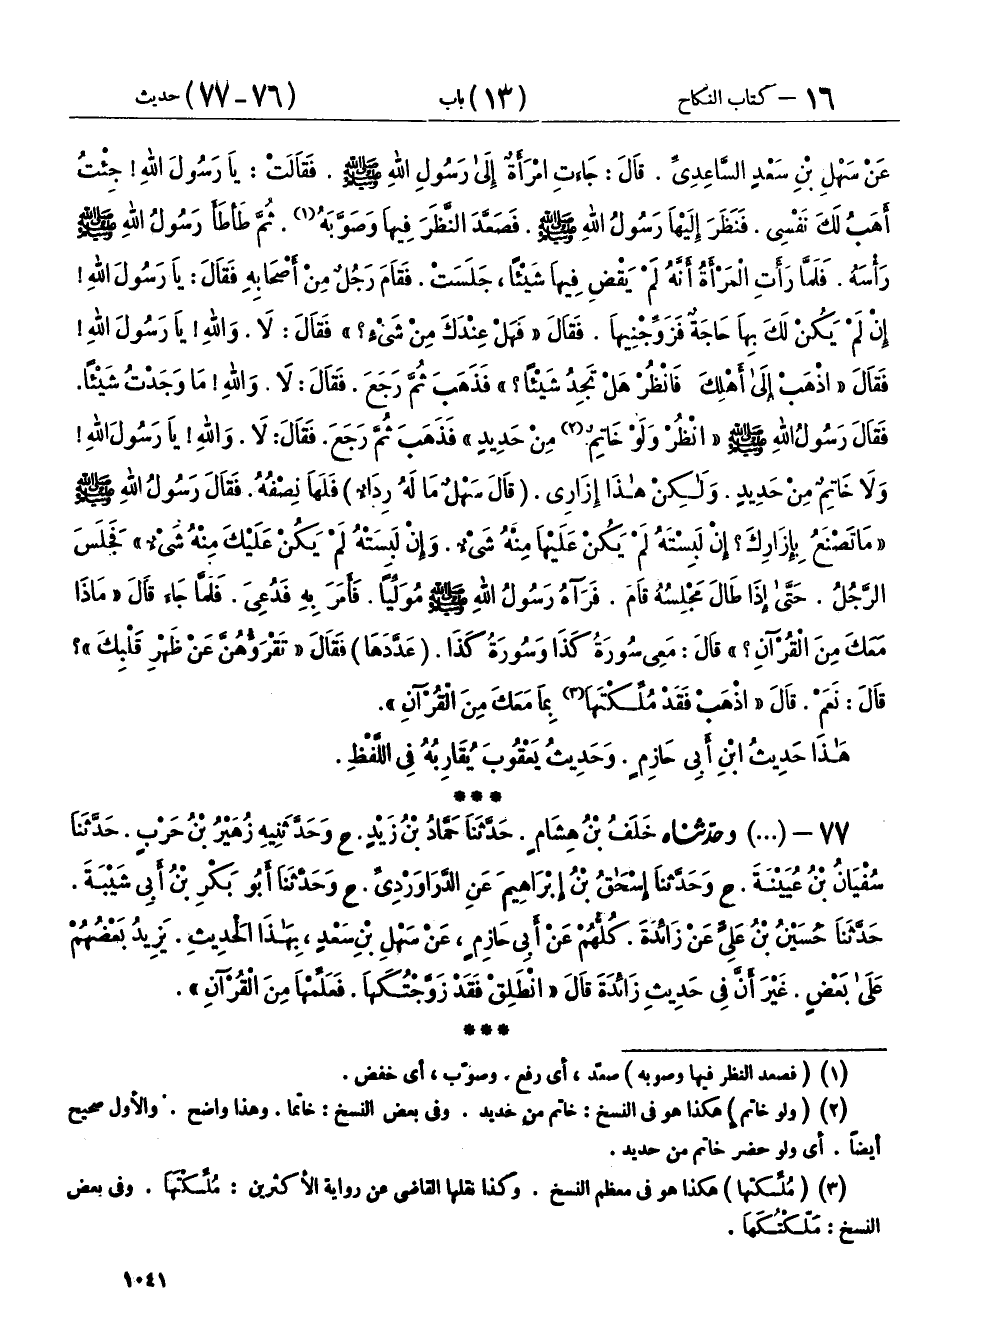 ١٦ – كتاب النكاح (١٣) باب (٧٦–٧٧) حديث
عَنْ سَهْلِ بْنِ سَعْدٍ السَّاعِدِىِّ . قَالَ : جَاءَتِ امْرَأَةٌ إِلَىٰ رَسُولِ اللهِ ﷺ . فَقَالَتْ : يَا رَسُولَ اللهِ ! جِئْتُ
أَهَبُ لَكَ نَفْسِى . فَنَظَرَ إِلَيْهَا رَسُولُ اللهِ ﷺ . فَصَعَّدَ النَّظَرَ فِيهَا وَصَوَّبَهُ(١) . ثُمَّ طَأْطَأَ رَسُولُ اللهِ ﷺ
رَأْسَهُ . فَلَمَّا رَأَتِ الْمَرْأَةُ أَنَّهُ لَمْ يَقْضِ فِيهَا شَيْئًا ، جَلَسَتْ . فَقَامَ رَجُلٌ مِنْ أَصْحَابِهِ فَقَالَ : يَا رَسُولَ اللهِ !
إِنْ لَمْ يَكُنْ لَكَ بِهَا حَاجَةٌ فَزَوِّجْنِيهَا . فَقَالَ « فَهَلْ عِنْدَكَ مِنْ شَىْءٍ ؟ » فَقَالَ : لَا . وَاللهِ ! يَا رَسُولَ اللهِ !
فَقَالَ « اذْهَبْ إِلَىٰ أَهْلِكَ فَانْظُرْ هَلْ تَجِدُ شَيْئًا ؟ » فَذَهَبَ ثُمَّ رَجَعَ . فَقَالَ : لَا . وَاللهِ ! مَا وَجَدْتُ شَيْئًا .
فَقَالَ رَسُولُ اللهِ ﷺ « انْظُرْ وَلَوْ خَاتِمٌ(٢) مِنْ حَدِيدٍ » فَذَهَبَ ثُمَّ رَجَعَ . فَقَالَ : لَا . وَاللهِ ! يَا رَسُولَ اللهِ !
وَلَا خَاتِمٌ مِنْ حَدِيدٍ . وَلَـٰكِنْ هٰذَا إِزَارِى . ( قَالَ سَهْلٌ مَا لَهُ رِدَاءٌ ) فَلَهَا نِصْفُهُ . فَقَالَ رَسُولُ اللهِ ﷺ
« مَا تَصْنَعُ بِإِزَارِكَ ؟ إِنْ لَبِسْتَهُ لَمْ يَكُنْ عَلَيْهَا مِنْهُ شَىْءٌ . وَإِنْ لَبِسَتْهُ لَمْ يَكُنْ عَلَيْكَ مِنْهُ شَىْءٌ » فَجَلَسَ
الرَّجُلُ . حَتَّىٰ إِذَا طَالَ مَجْلِسُهُ قَامَ . فَرَآهُ رَسُولُ اللهِ ﷺ مُوَلِّيًا . فَأَمَرَ بِهِ فَدُعِىَ . فَلَمَّا جَاءَ قَالَ « مَاذَا
مَعَكَ مِنَ الْقُرْآنِ ؟ » قَالَ : مَعِى سُورَةُ كَذَا وَسُورَةُ كَذَا . ( عَدَّدَهَا ) فَقَالَ « تَقْرَؤُهُنَّ عَنْ ظَهْرِ قَلْبِكَ » ؟
قَالَ : نَعَمْ . قَالَ « اذْهَبْ فَقَدْ مُلِّكْتَهَا(٣) بِمَا مَعَكَ مِنَ الْقُرْآنِ » .
هٰذَا حَدِيثُ ابْنِ أَبِى حَازِمٍ . وَحَدِيثُ يَعْقُوبَ يُقَارِبُهُ فِى اللَّفْظِ .
***
٧٧ – (...) وحدثناه خَلَفُ بْنُ هِشَامٍ . حَدَّثَنَا حَمَّادُ بْنُ زَيْدٍ . ع وَحَدَّثَنِيهِ زُهَيْرُ بْنُ حَرْبٍ . حَدَّثَنَا
سُفْيَانُ بْنُ عُيَيْنَةَ . ع وَحَدَّثَنَا إِسْحَٰقُ بْنُ إِبْرَاهِيمَ عَنِ الدَّرَاوَرْدِىِّ . ع وَحَدَّثَنَا أَبُو بَكْرِ بْنُ أَبِى شَيْبَةَ .
حَدَّثَنَا حُسَيْنُ بْنُ عَلِىٍّ عَنْ زَائِدَةَ . كُلُّهُمْ عَنْ أَبِى حَازِمٍ ، عَنْ سَهْلِ بْنِ سَعْدٍ ، بِهٰذَا الْحَدِيثِ . يَزِيدُ بَعْضُهُمْ
عَلَىٰ بَعْضٍ . غَيْرَ أَنَّ فِى حَدِيثِ زَائِدَةَ قَالَ « انْطَلِقْ فَقَدْ زَوَّجْتُكَهَا . فَعَلِّمْهَا مِنَ الْقُرْآنِ » .
***
(١) ( فصعد النظر فيها وصوبه ) صعّد ، أى رفع . وصوّب ، أى خفض .
(٢) ( ولو خاتم ) هكذا هو فى النسخ : خاتم من حديد . وفى بعض النسخ : خاتما . وهذا واضح . والأول صحيح
أيضاً . أى ولو حضر خاتم من حديد .
(٣) ( مُلِّكتها ) هكذا هو فى معظم النسخ . وكذا نقلها القاضى عن رواية الأكثرين : مُلِّكْتَهَا . وفى بعض
النسخ : مَلَّكْتُكَهَا .
١٠٤١